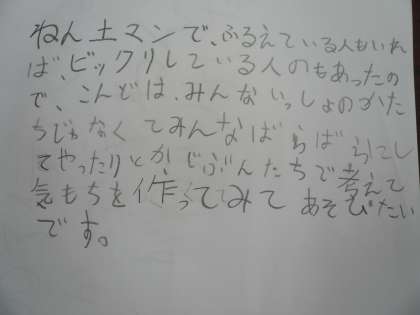 ねん土マンで、ふるえている人もいれ
ば、ビックリしている人のもあったの
で、こんどは、みんないっしょのかた
ちじゃなくてみんなばらばらにし
てやったりとかじぶんたちで考えて
気もちを作ってみてあそびたい
です。